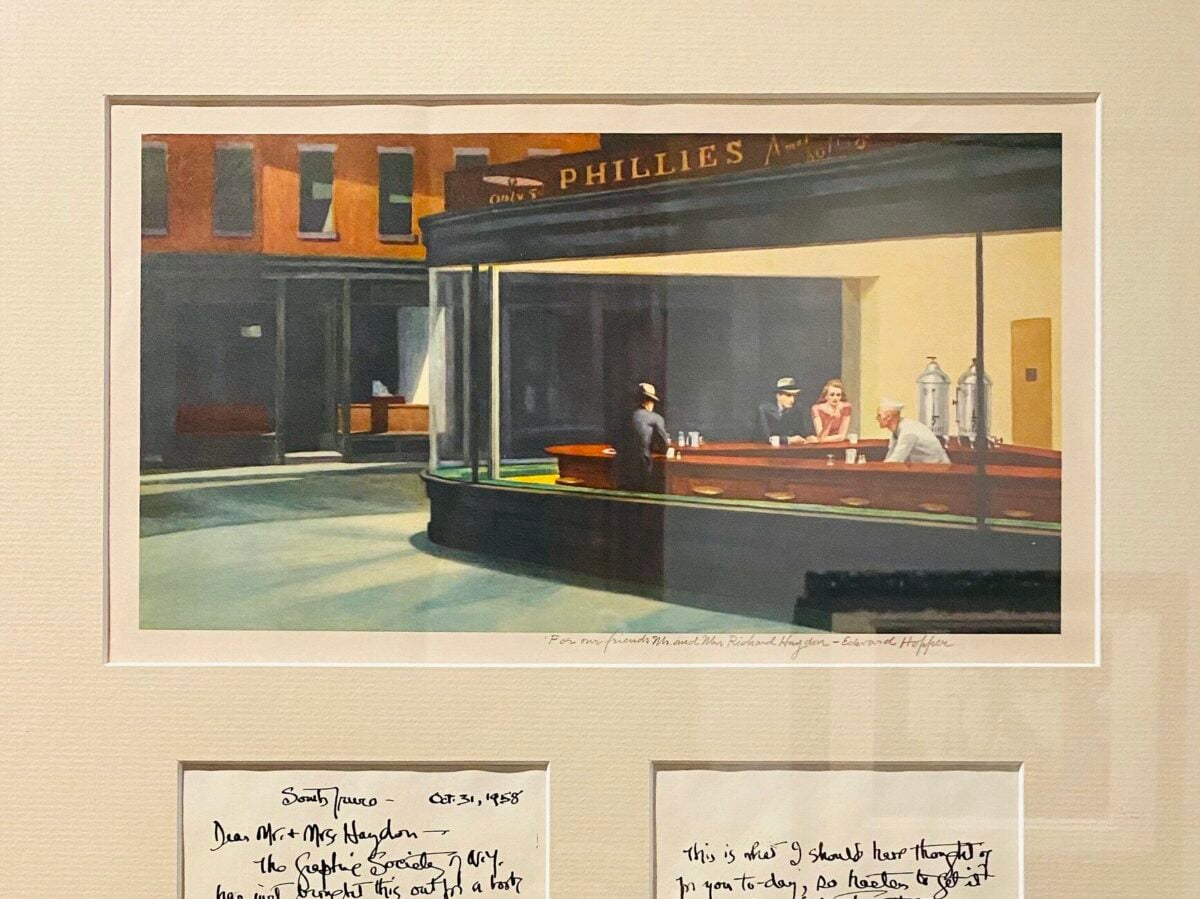 PHILLIES
"For our friends Mr. and Mrs Richard Haydon – Edward Hopper
South Truro – Oct. 31, 1958
Dear Mr. + Mrs Haydon —
The Graphic Society of N.Y.
has just brought this out for a book
This is what I should have thought of
for you to-day, so hasten to get it